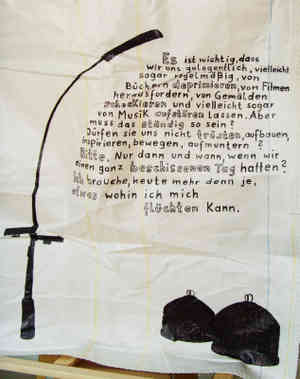 Es ist wichtig, dass
wir uns gelegentlich, vielleicht
sogar regelmäßig, von
Büchern deprimieren, von Filmen
herausfordern, von Gemälden
schockieren und vielleicht sogar
von Musik aufstören lassen. Aber
muss das ständig so sein?
Dürfen sie uns nicht trösten, aufbauen,
inspirieren, bewegen, aufmuntern?
Bitte. Nur dann und wann, wenn wir
einen ganz beschissenen Tag hatten?
Ich brauche, heute mehr denn je,
etwas wohin ich mich
flüchten kann.